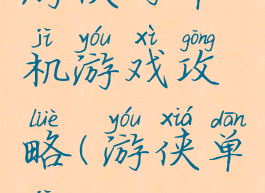 jī yóu xì gōng
机游戏攻
lüè yóu xiá dān
略(游侠单